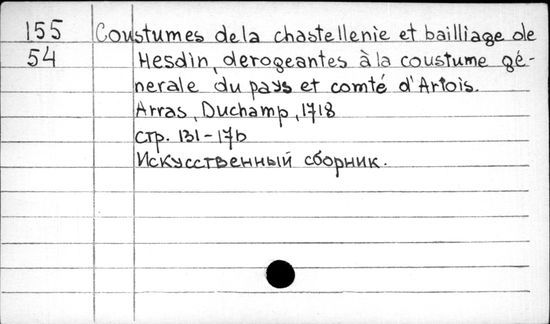 155 Coustumes dela chastellenie et bailliage de
54 Hesdin, derogeantes à la coustume gé-
nerale du pays et comté d'Artois.
Arras, Duchamp, 1718
стр. 131-176
Искусственный сборник.